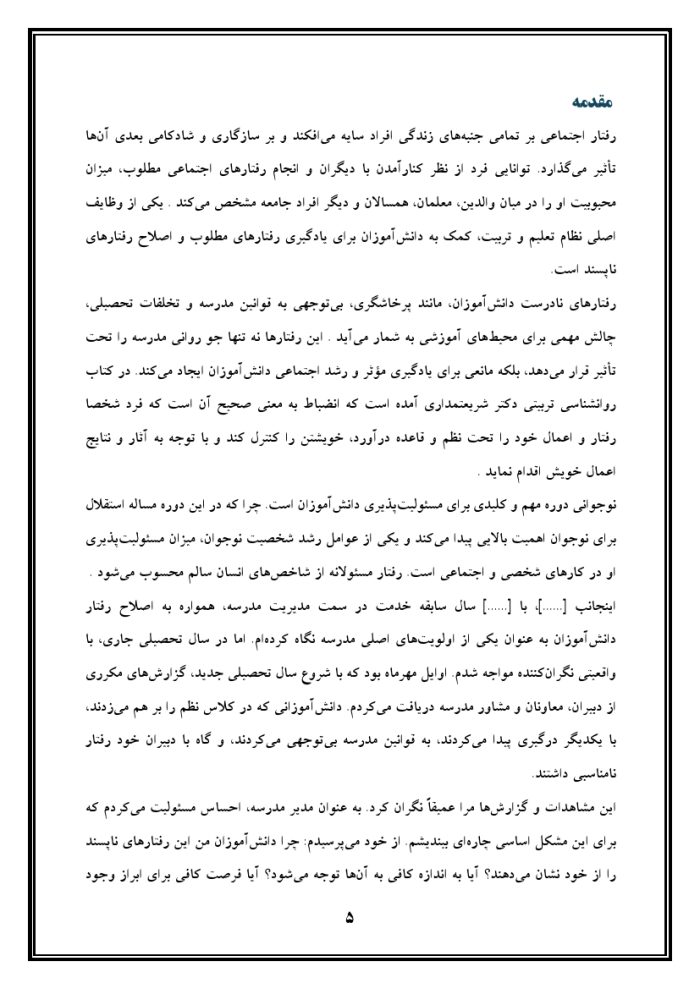 مقدمه
رفتار اجتماعی بر تمامی جنبه‌های زندگی افراد سایه می‌افکند و بر سازگاری و شادکامی بعدی آن‌ها
تأثیر می‌گذارد. توانایی فرد از نظر کنارآمدن با دیگران و انجام رفتارهای اجتماعی مطلوب، میزان
محبوبیت او را در میان والدین، معلمان، همسالان و دیگر افراد جامعه مشخص می‌کند . یکی از وظایف
اصلی نظام تعلیم و تربیت، کمک به دانش‌آموزان برای یادگیری رفتارهای مطلوب و اصلاح رفتارهای
ناپسند است.
رفتارهای نادرست دانش‌آموزان، مانند پرخاشگری، بی‌توجهی به قوانین مدرسه و تخلفات تحصیلی،
چالش مهمی برای محیط‌های آموزشی به شمار می‌آید . این رفتارها نه تنها جو روانی مدرسه را تحت
تأثیر قرار می‌دهد، بلکه مانعی برای یادگیری مؤثر و رشد اجتماعی دانش‌آموزان ایجاد می‌کند. در کتاب
روانشناسی تربیتی دکتر شریعتمداری آمده است که انضباط به معنی صحیح آن است که فرد شخصا
رفتار و اعمال خود را تحت نظم و قاعده درآورد، خویشتن را کنترل کند و با توجه به آثار و نتایج
اعمال خویش اقدام نماید .
نوجوانی دوره مهم و کلیدی برای مسئولیت‌پذیری دانش‌آموزان است. چرا که در این دوره مساله استقلال
برای نوجوان اهمیت بالایی پیدا می‌کند و یکی از عوامل رشد شخصیت نوجوان، میزان مسئولیت‌پذیری
او در کارهای شخصی و اجتماعی است. رفتار مسئولانه از شاخص‌های انسان سالم محسوب می‌شود .
اینجانب [......]، با [......] سال سابقه خدمت در سمت مدیریت مدرسه، همواره به اصلاح رفتار
دانش‌آموزان به عنوان یکی از اولویت‌های اصلی مدرسه نگاه کرده‌ام. اما در سال تحصیلی جاری، با
واقعیتی نگران‌کننده مواجه شدم. اوایل مهرماه بود که با شروع سال تحصیلی جدید، گزارش‌های مکرری
از دبیران، معاونان و مشاور مدرسه دریافت می‌کردم. دانش‌آموزانی که در کلاس نظم را بر هم می‌زدند،
با یکدیگر درگیری پیدا می‌کردند، به قوانین مدرسه بی‌توجهی می‌کردند، و گاه با دبیران خود رفتار
نامناسبی داشتند.
این مشاهدات و گزارش‌ها مرا عمیقاً نگران کرد. به عنوان مدیر مدرسه، احساس مسئولیت می‌کردم که
برای این مشکل اساسی چاره‌ای بیندیشم. از خود می‌پرسیدم: چرا دانش‌آموزان من این رفتارهای ناپسند
را از خود نشان می‌دهند؟ آیا به اندازه کافی به آن‌ها توجه می‌شود؟ آیا فرصت کافی برای ابراز وجود
۵